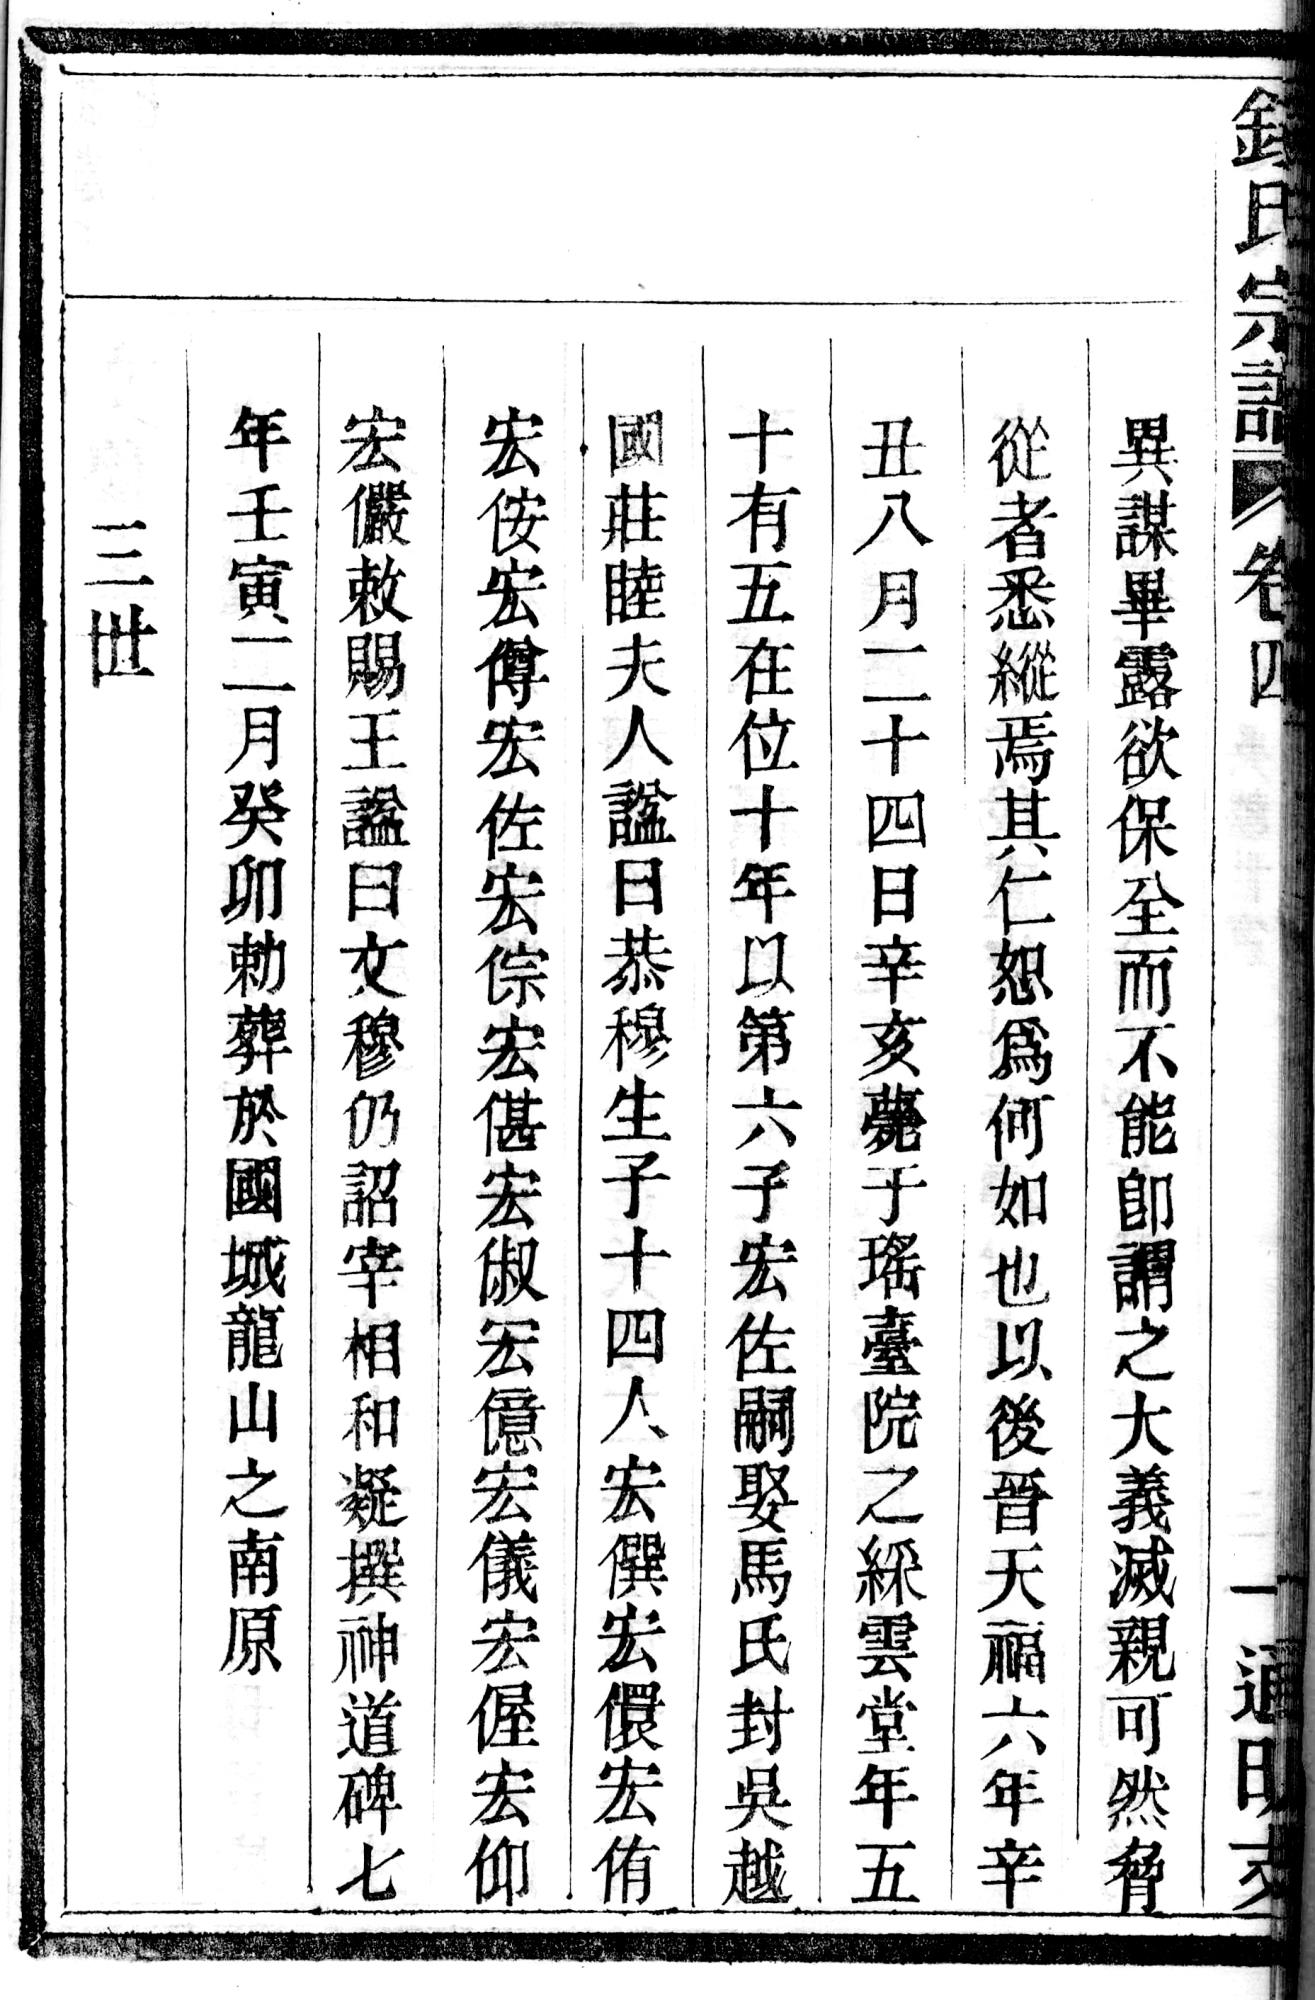 錢氏宗譜 卷四 一 通明支
異謀畢露欲保全而不能卽謂之大義滅親可然脅
從者悉縱焉其仁恕爲何如也以後晉天福六年辛
丑八月二十四日辛亥薨于瑤臺院之綵雲堂年五
十有五在位十年以第六子宏佐嗣娶馬氏封吳越
國莊睦夫人諡曰恭穆生子十四人宏僎宏儇宏侑
宏侒宏僔宏佐宏倧宏偡宏俶宏億宏儀宏偓宏仰
宏儼敕賜王諡曰文穆仍詔宰相和凝撰神道碑七
年壬寅二月癸卯勅葬於國城龍山之南原
三世